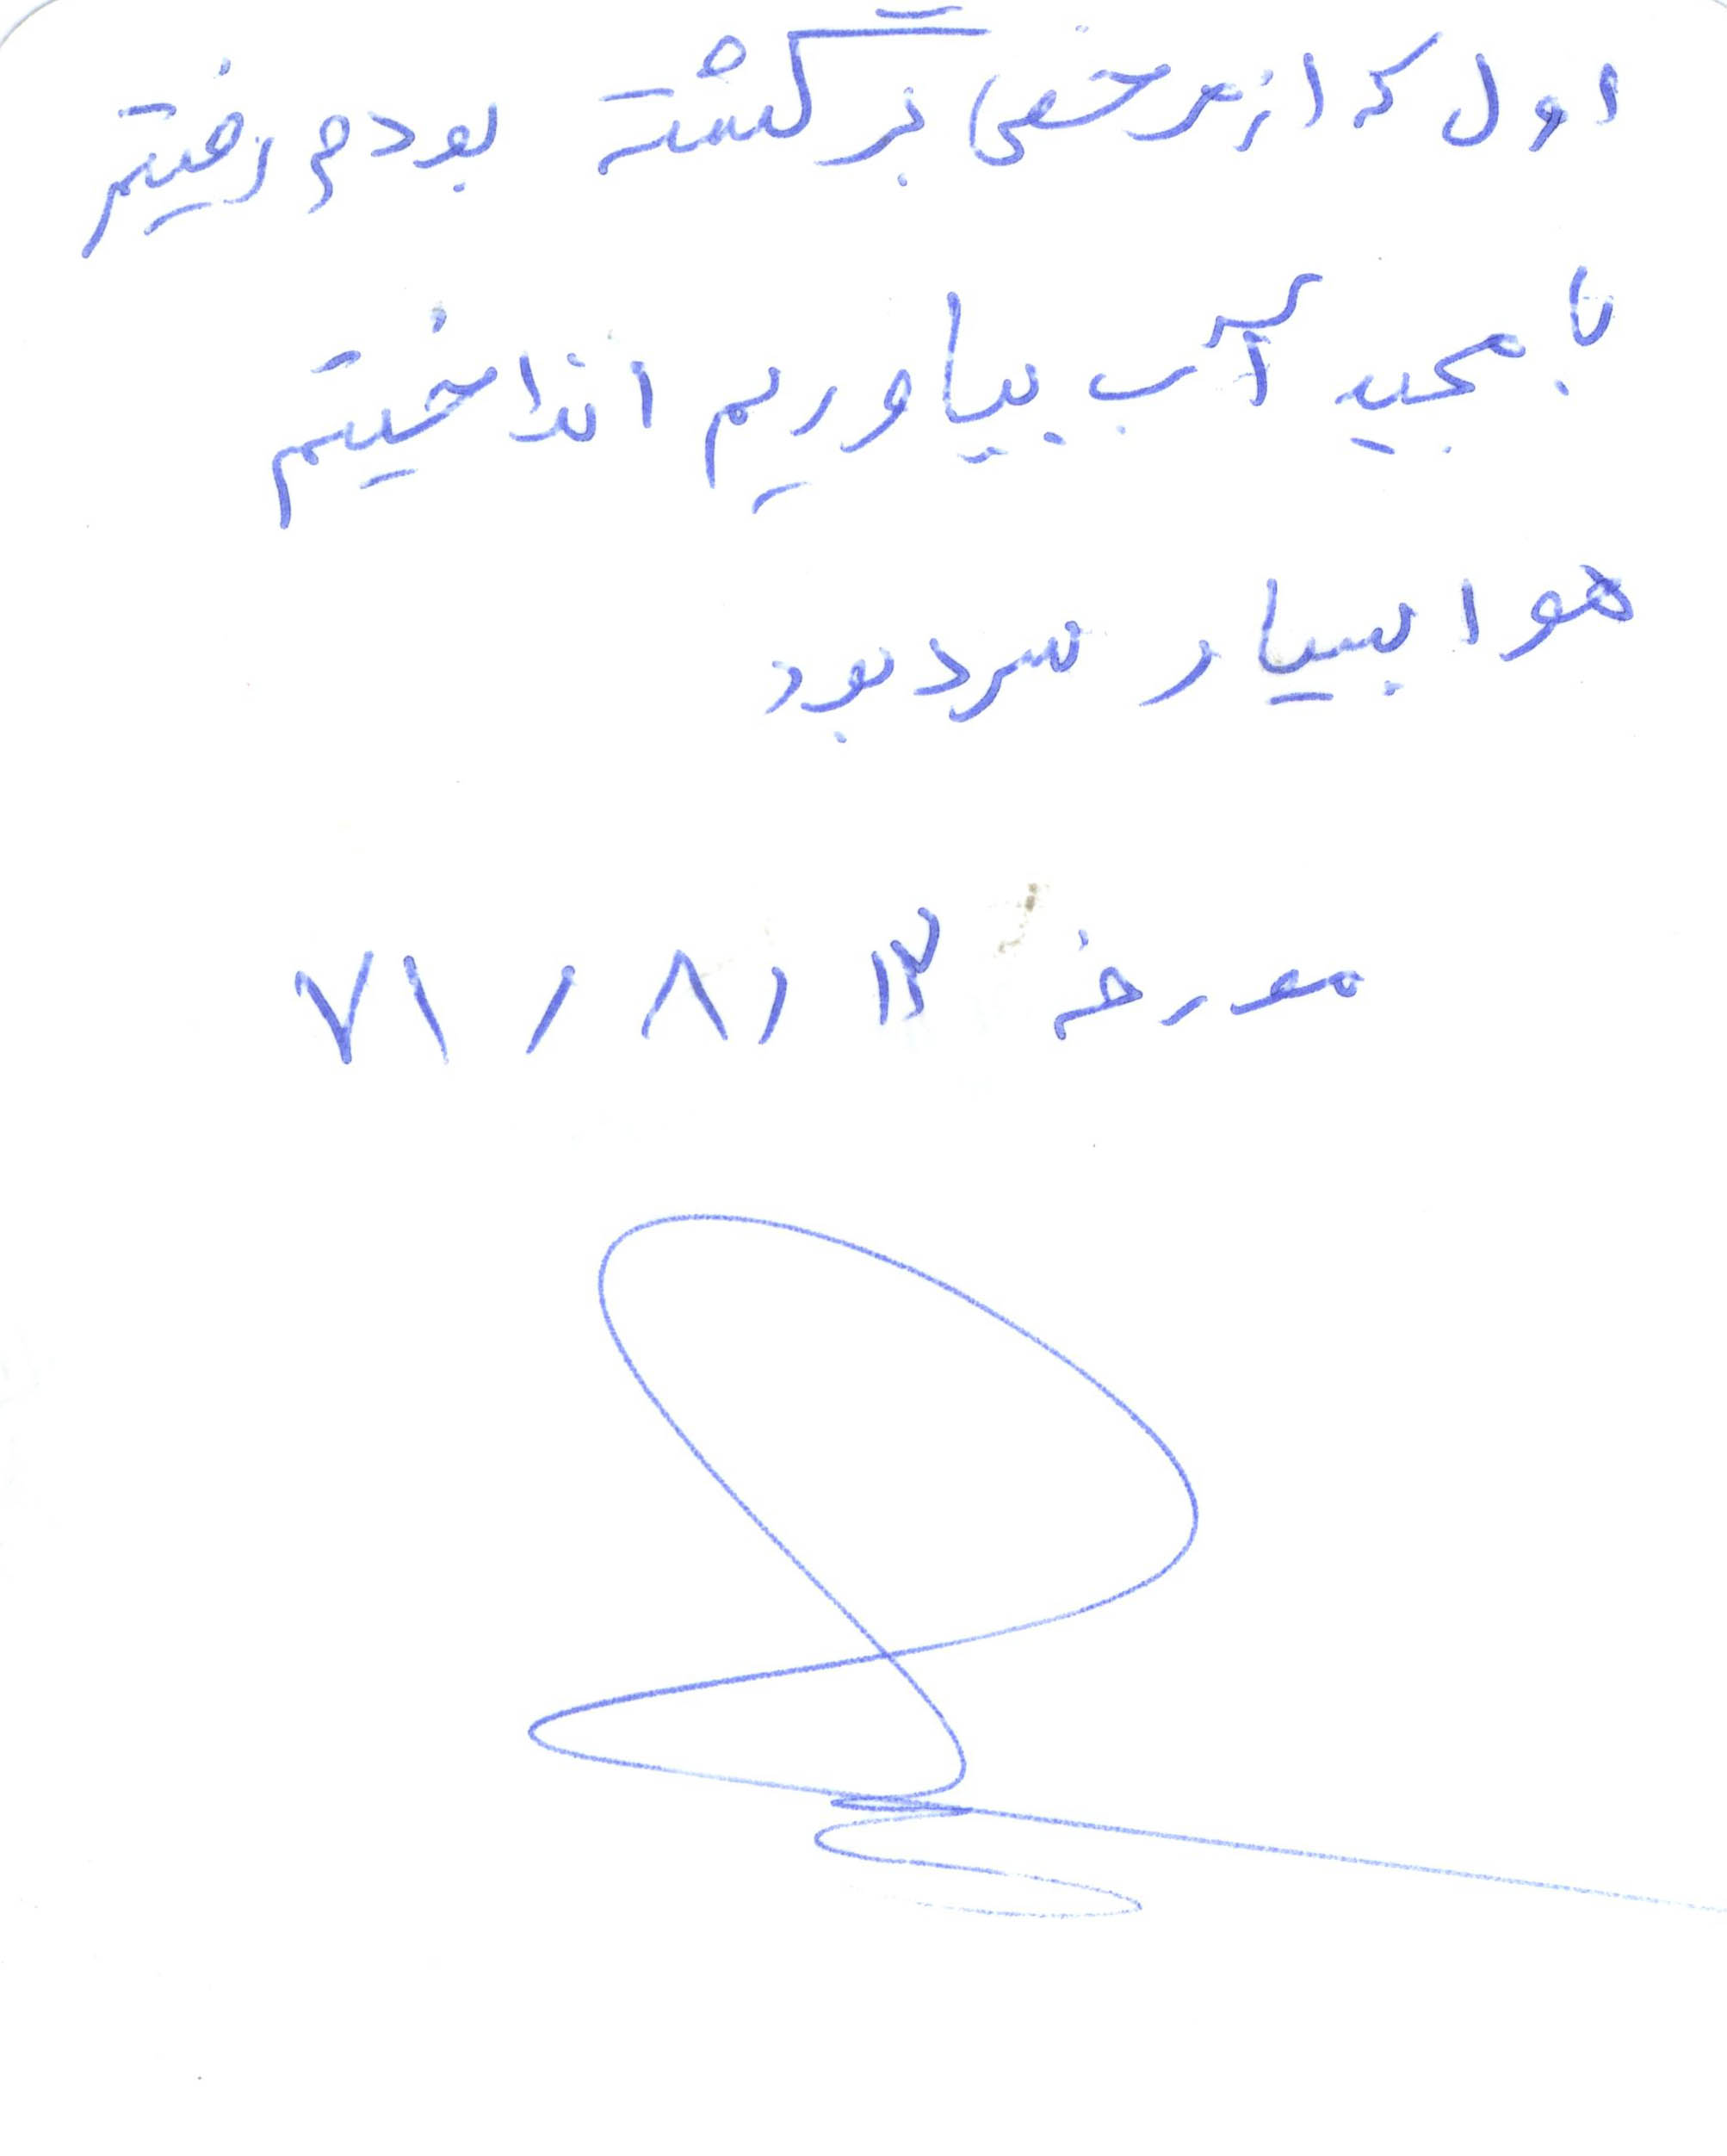 اول که از مرخصی برگشته بودم رفتیم
با مجید که آب بیاوریم انداختیم
هوا بسیار سرد بود
مورخه ۷۱/۸/۱۳